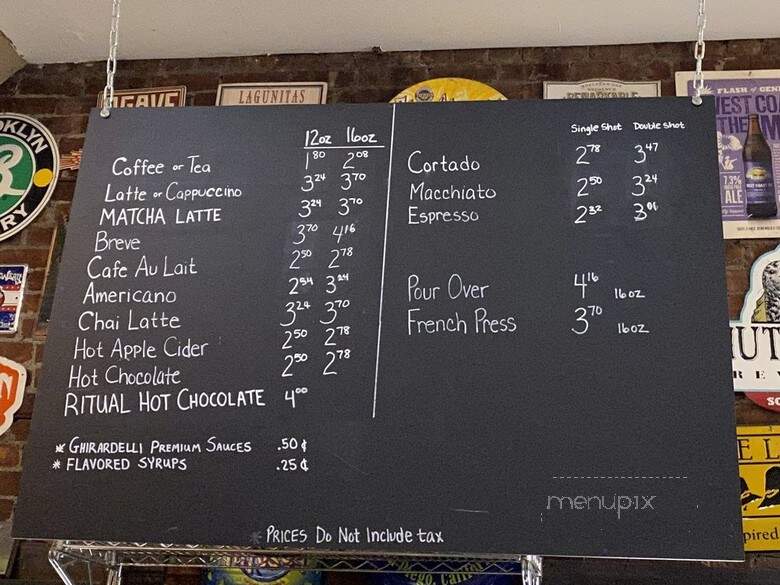 AGAVE
LAGUNITAS
REMARKABLE
FLASH of GEN
WEST CO
THE
BROOKLYN
7.3%
ALE
12oz 16oz
Coffee or Tea 1.80 2.08
Latte or Cappuccino 3.24 3.70
MATCHA LATTE 3.24 3.70
Breve 3.70 4.16
Cafe Au Lait 2.50 2.78
Americano 2.54 3.24
Chai Latte 3.24 3.70
Hot Apple Cider 2.50 2.78
Hot Chocolate 2.50 2.78
RITUAL HOT CHOCOLATE 4.00
* GHIRARDELLI PREMIUM SAUCES .50¢
* FLAVORED SYRUPS .25¢
Single Shot Double Shot
Cortado 2.78 3.47
Macchiato 2.50 3.24
Espresso 2.32 3.01
Pour Over 4.16 16oz
French Press 3.70 16oz
* PRICES Do Not Include tax
menupix